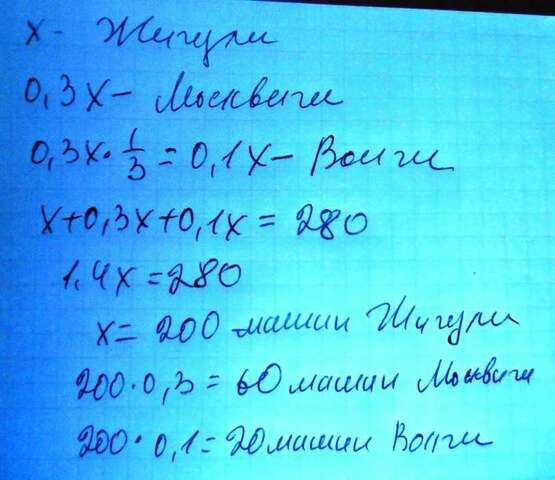 х - Жигули
0,3х - Москвичи
0,3х · 1/3 = 0,1х - Волги
х+0,3х+0,1х = 280
1,4х = 280
х = 200 машин Жигули
200 · 0,3 = 60 машин Москвичи
200 · 0,1 = 20 машин Волги